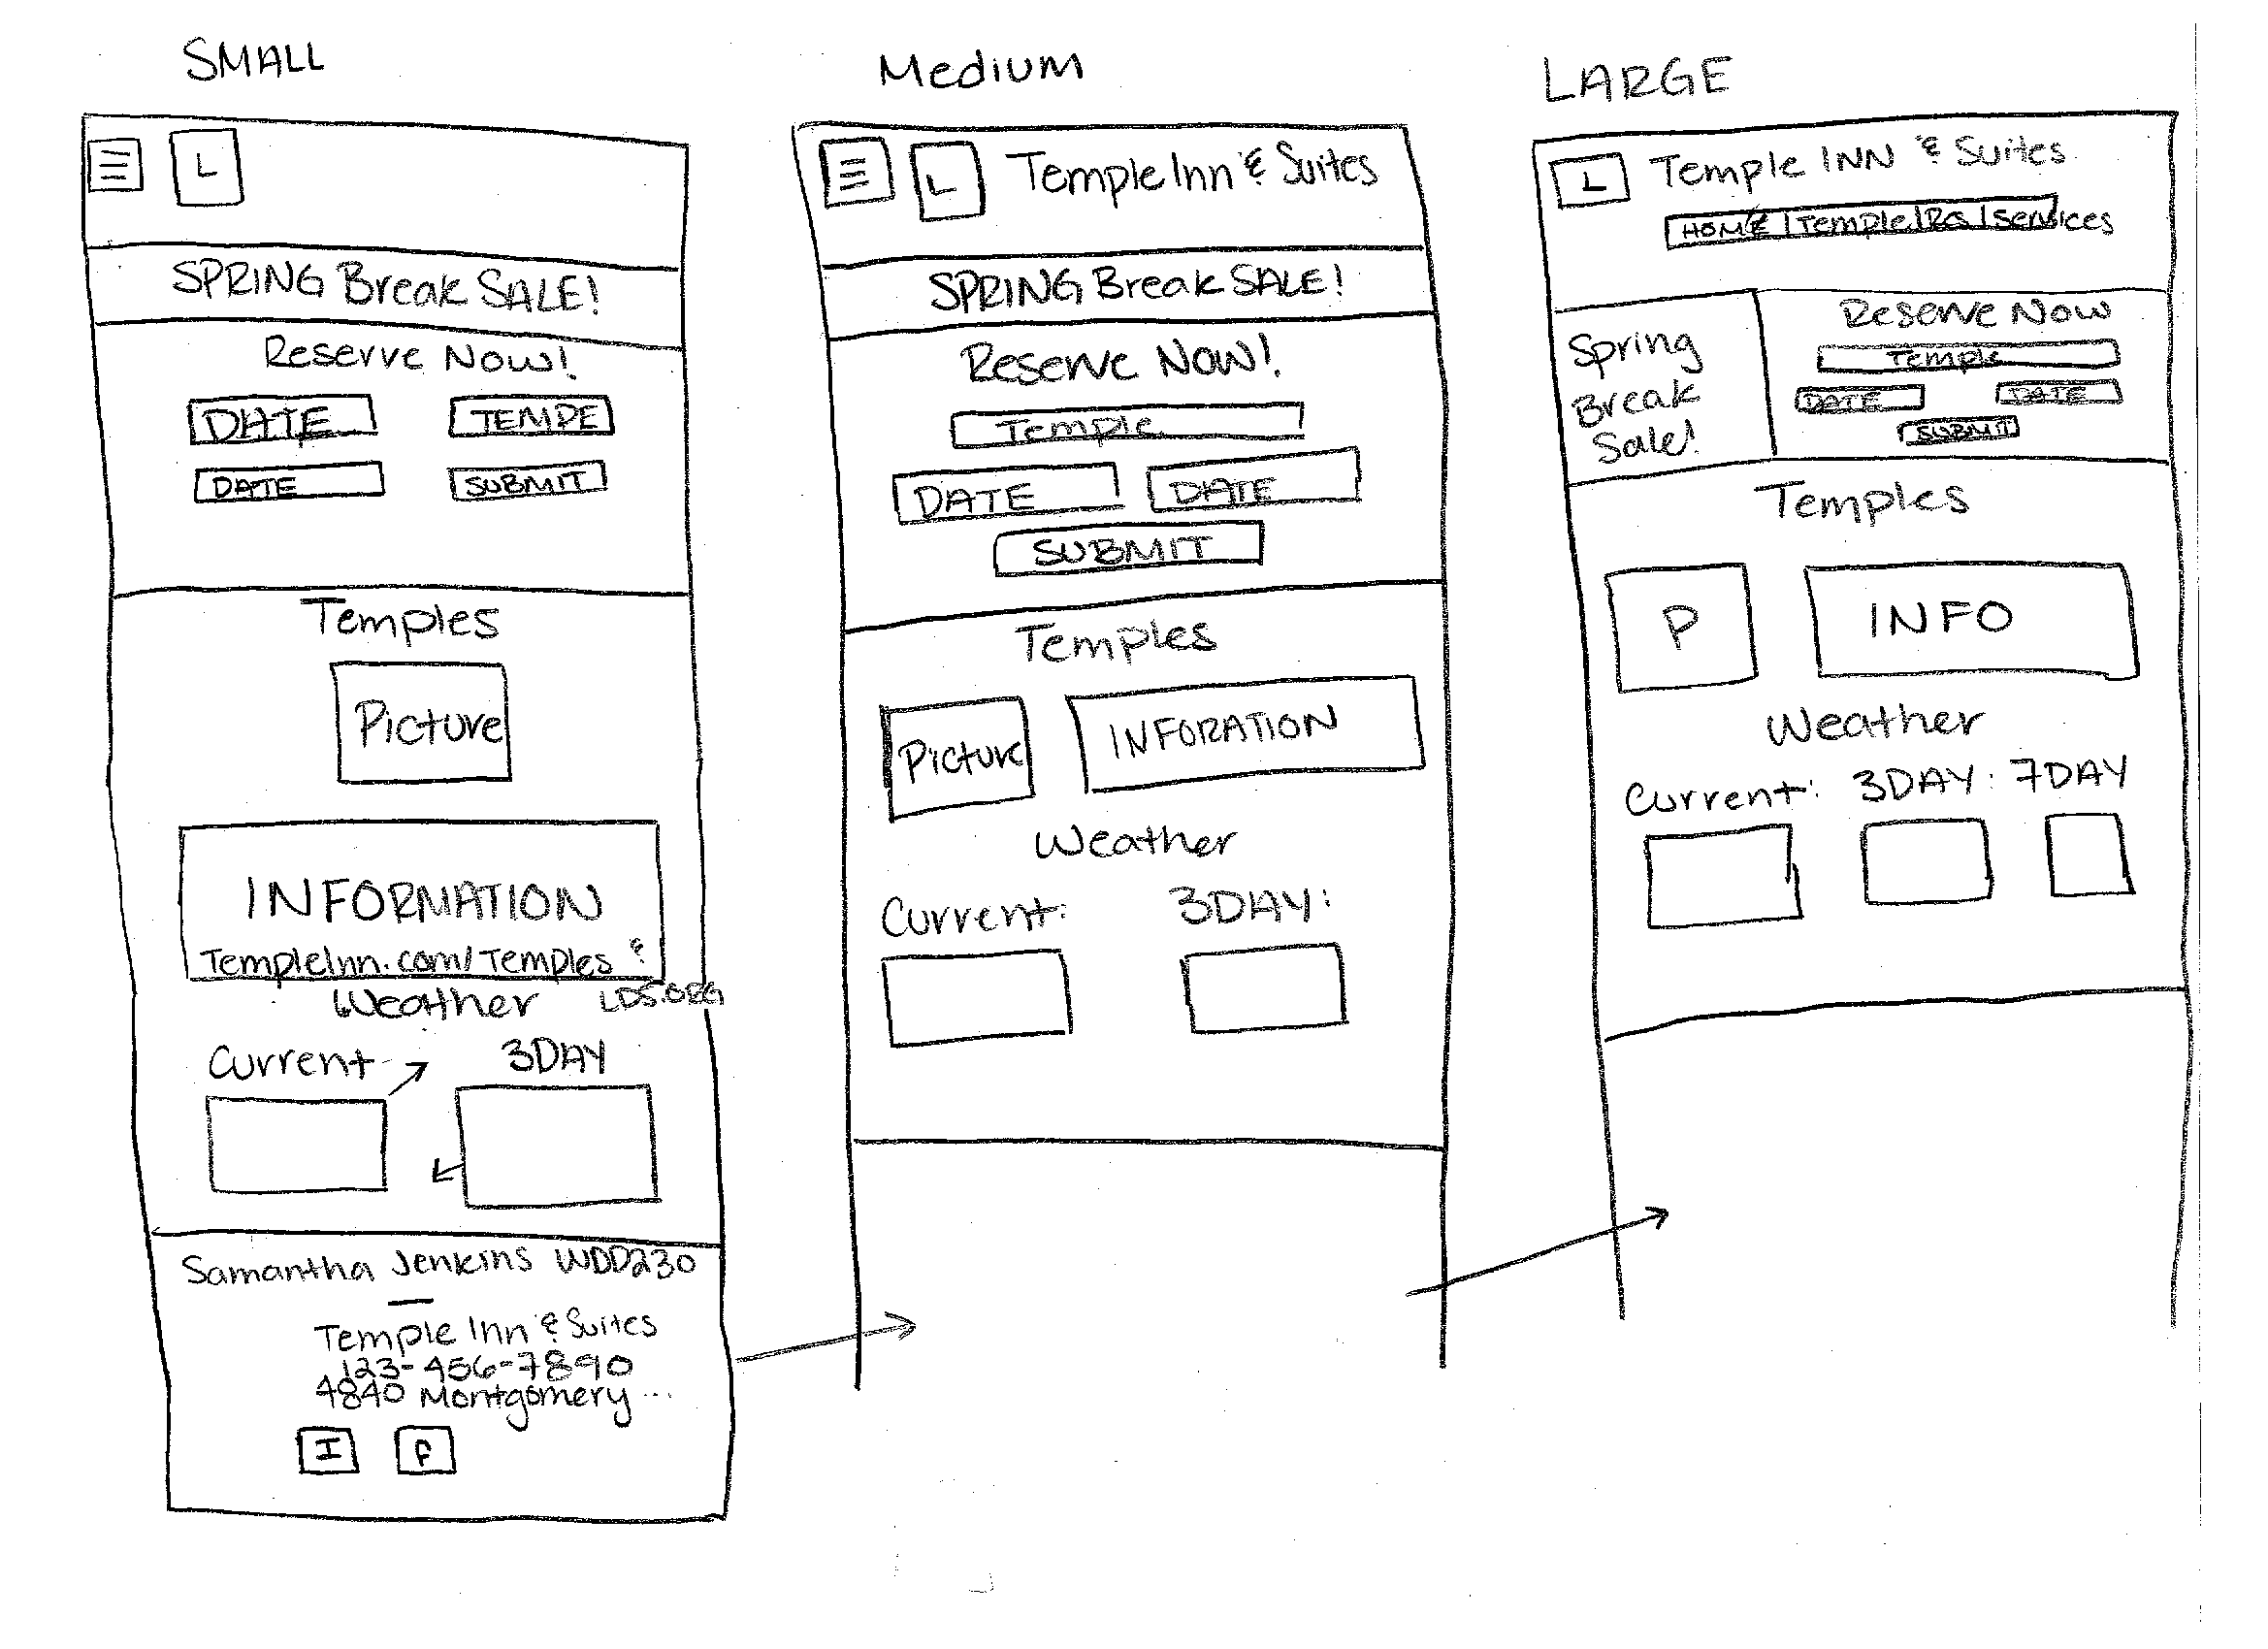 SMALL
L
SPRING Break SALE!
Reserve Now!
DATE TEMPE
DATE SUBMIT
Temples
Picture
INFORMATION
TempleInn.com/Temples &
LDS.ORG
Weather
Current 3DAY
Samantha Jenkins WDD230
Temple Inn & Suites
123-456-7890
4840 Montgomery ...
I f
Medium
L Temple Inn & Suites
SPRING Break SALE!
Reserve Now!
Temple
DATE DATE
SUBMIT
Temples
Picture INFORATION
Weather
Current: 3DAY:
LARGE
L Temple INN & Suites
HOME | Temple | Rs | Services
Spring
Break
Sale!
Reserve Now
Temple
DATE DATE
SUBMIT
Temples
P INFO
Weather
Current: 3DAY: 7DAY